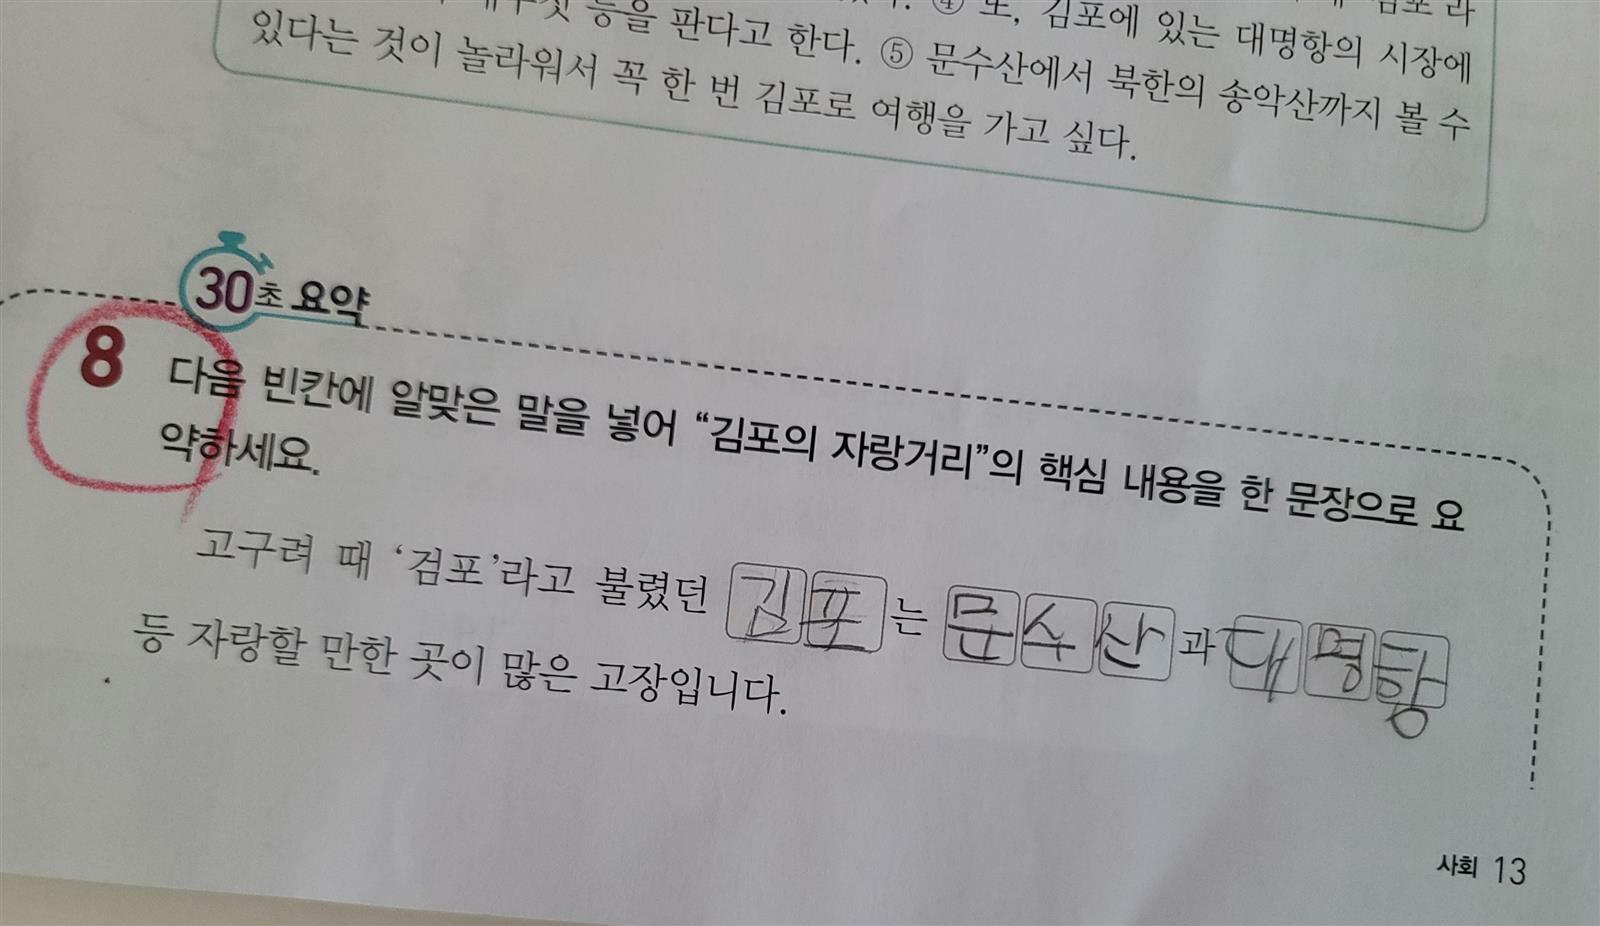 등을 판다고 한다. ④ 또, 김포에 있는 대명항의 시장에
있다는 것이 놀라워서 꼭 한 번 김포로 여행을 가고 싶다. ⑤ 문수산에서 북한의 송악산까지 볼 수
30초 요약
8 다음 빈칸에 알맞은 말을 넣어 “김포의 자랑거리”의 핵심 내용을 한 문장으로 요
약하세요.
고구려 때 ‘검포’라고 불렸던 김포는 문수산과 대명항
등 자랑할 만한 곳이 많은 고장입니다.
사회 13